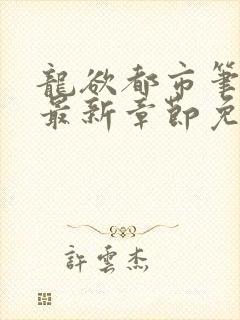 龍欲都市筆
最新章節免
許雲杰